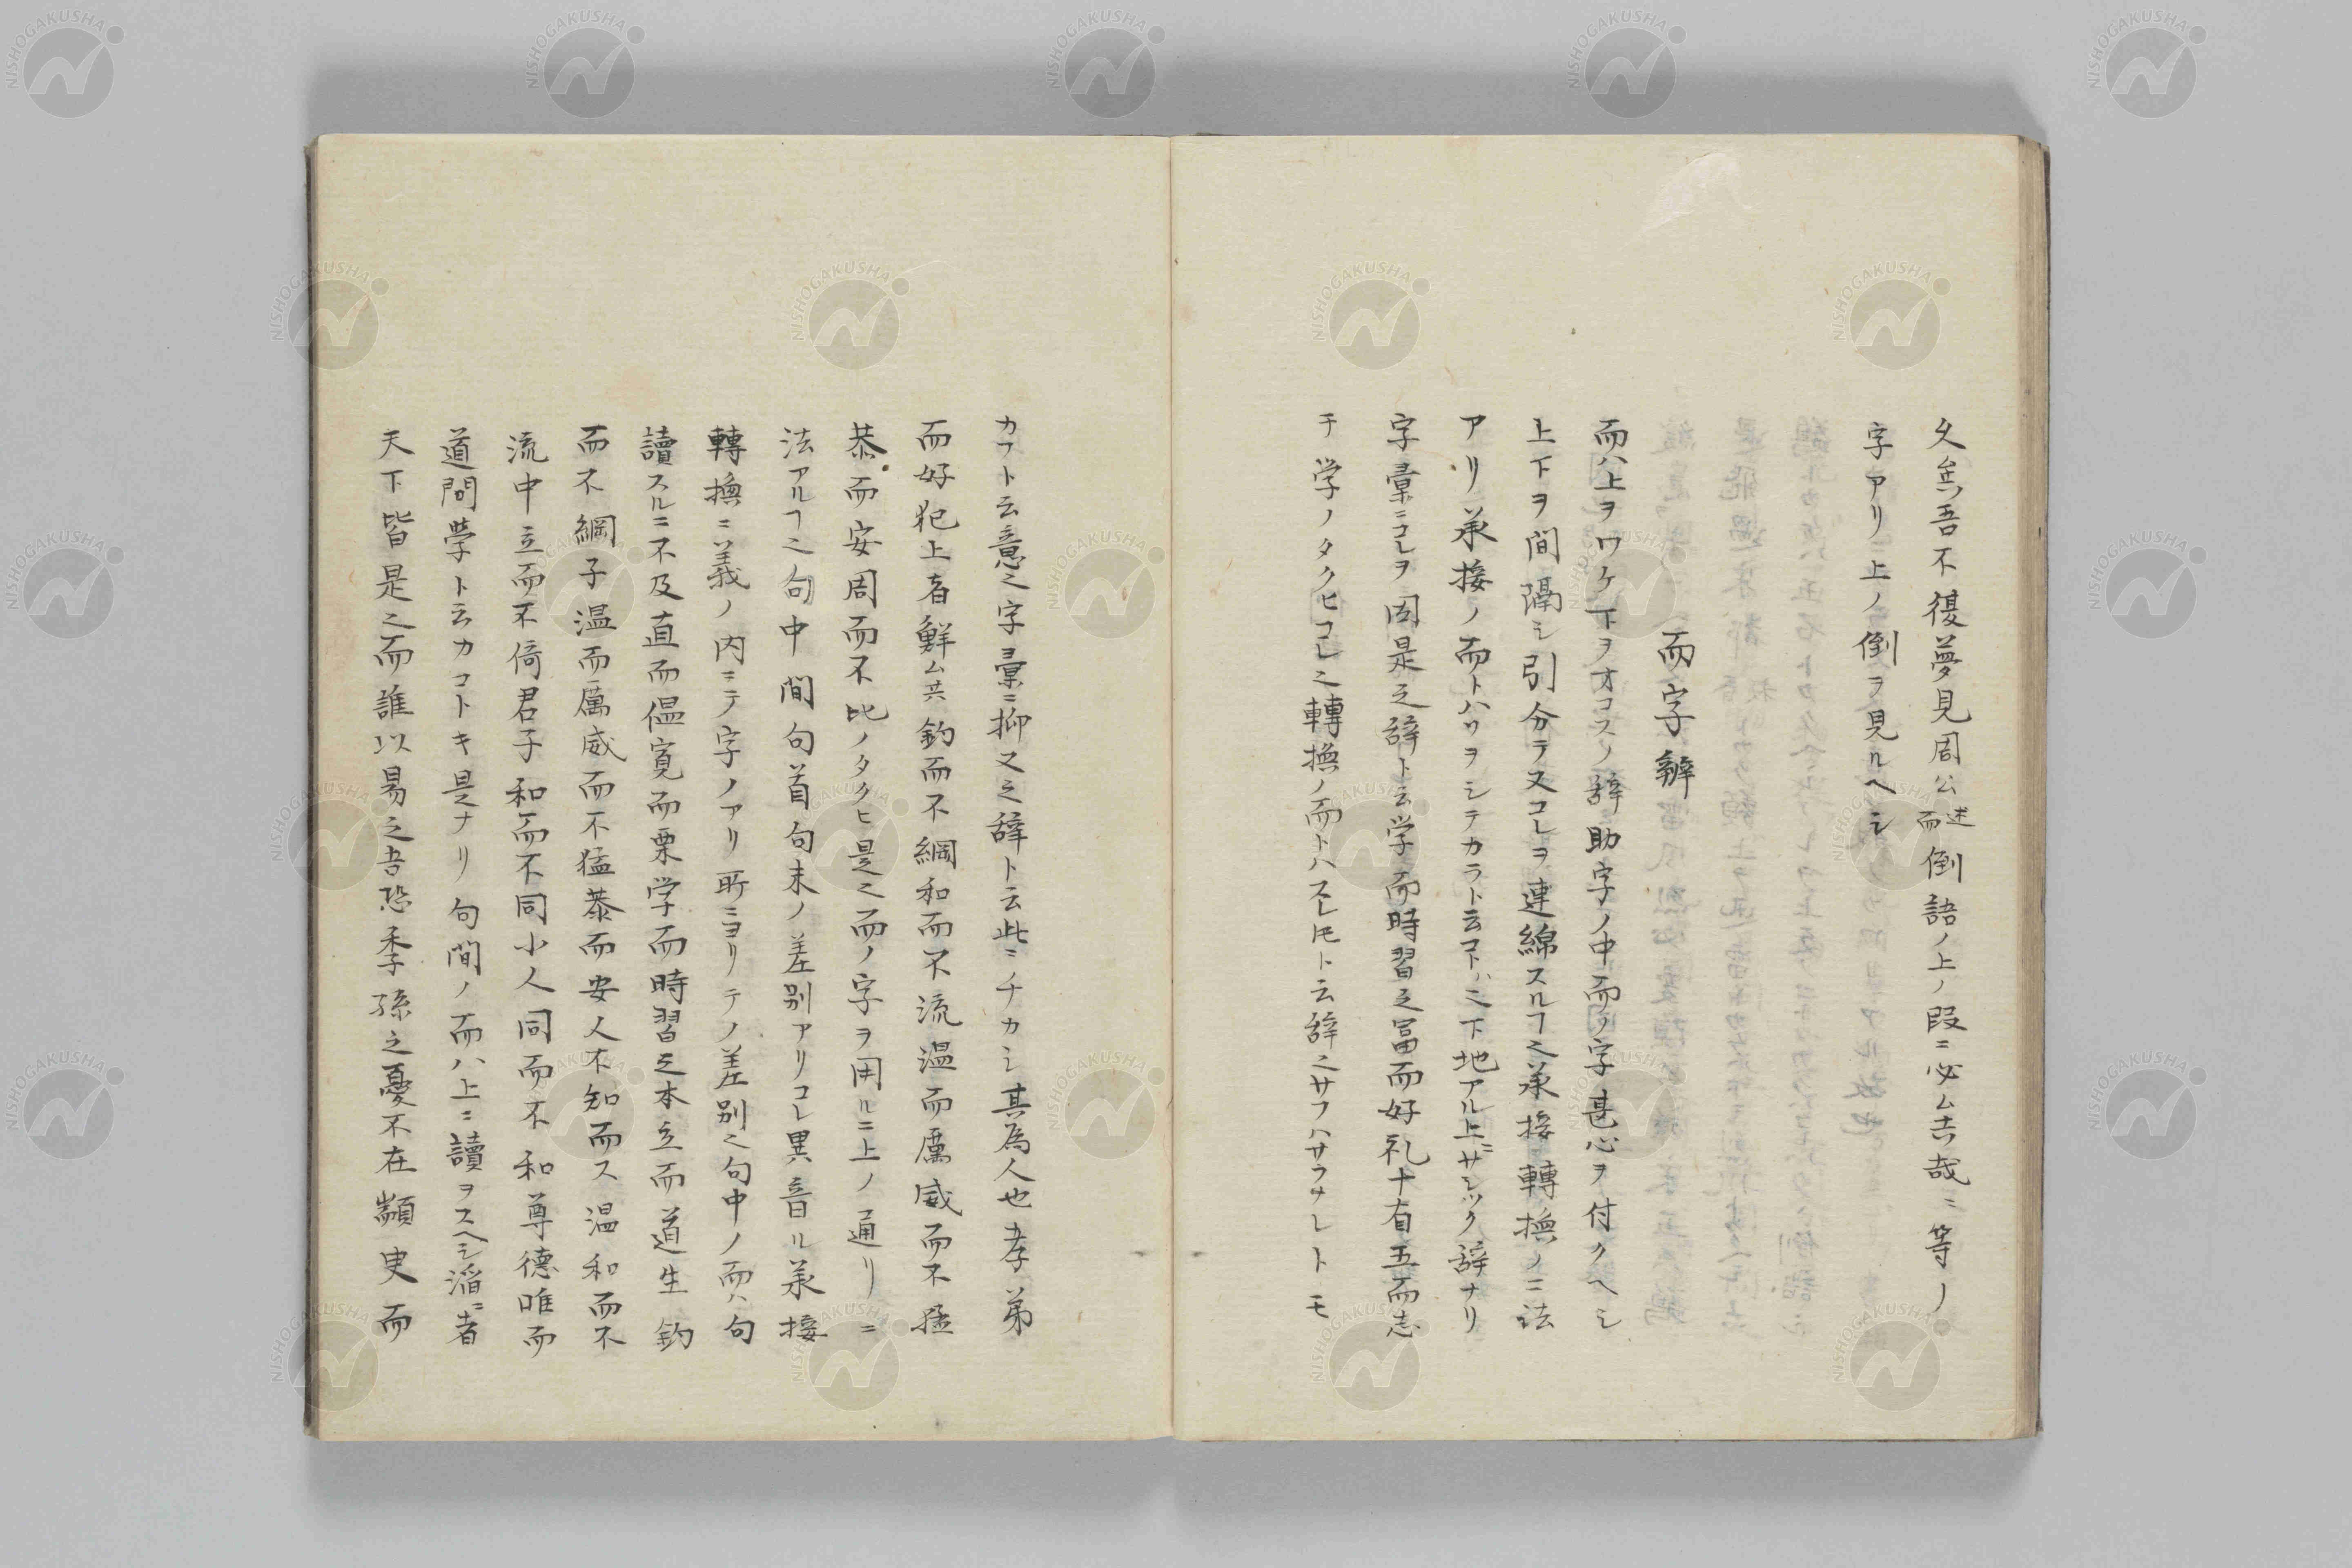 久矣吾不復夢見周公述而倒語ノ上ノ段ニ必ム吉哉ニ等ノ
字アリニ上ノ倒ヲ見ルヘシ
而字辧
而ハ上ヲワケ下ヲオコスノ辞助字ノ中而ノ字甚心ヲ付クヘシ
上下ヲ間隔シ引分テ又コレヲ連綿スルヿ之承接轉換ノ二法
アリ承接ノ而トハヲシテカラト云コトハ之下地アル上ニサシツク辞ナリ
字彙ニコレヲ因是之辞ト云学而時習之冨而好礼十有五而志
チ学ノタクヒコレ之轉換ノ而トハスレ𪜈ト云辞之サフハサフナレトモ
カフト云意之字彙ニ抑又之辞ト云此ニチカシ其為人也孝弟
而好犯上者鮮ム共釣而不綱和而不流温而厲威而不猛
恭而安周而不比ノタクヒ是之而ノ字ヲ用ルニ上ノ通リニ
法アルヿ之句中間句首句末ノ差別アリコレ異音ル承接
轉換ニ義ノ内ニテ字ノアリ所ニヨリテノ差別之句中ノ而ハ句
讀スルニ不及直而温寛而栗学而時習之本立而道生釣
而不綱子温而厲威而不猛恭而安人不知而ス温和而不
流中立而不倚君子和而不同小人同而不和尊德唯而
道問学ト云カコトキ是ナリ句間ノ而ハ上ニ讀ヲスヘシ滔ニ者
天下皆是之而誰以易之吾恐季孫之憂不在顓臾而
NISHOGAKUSHA